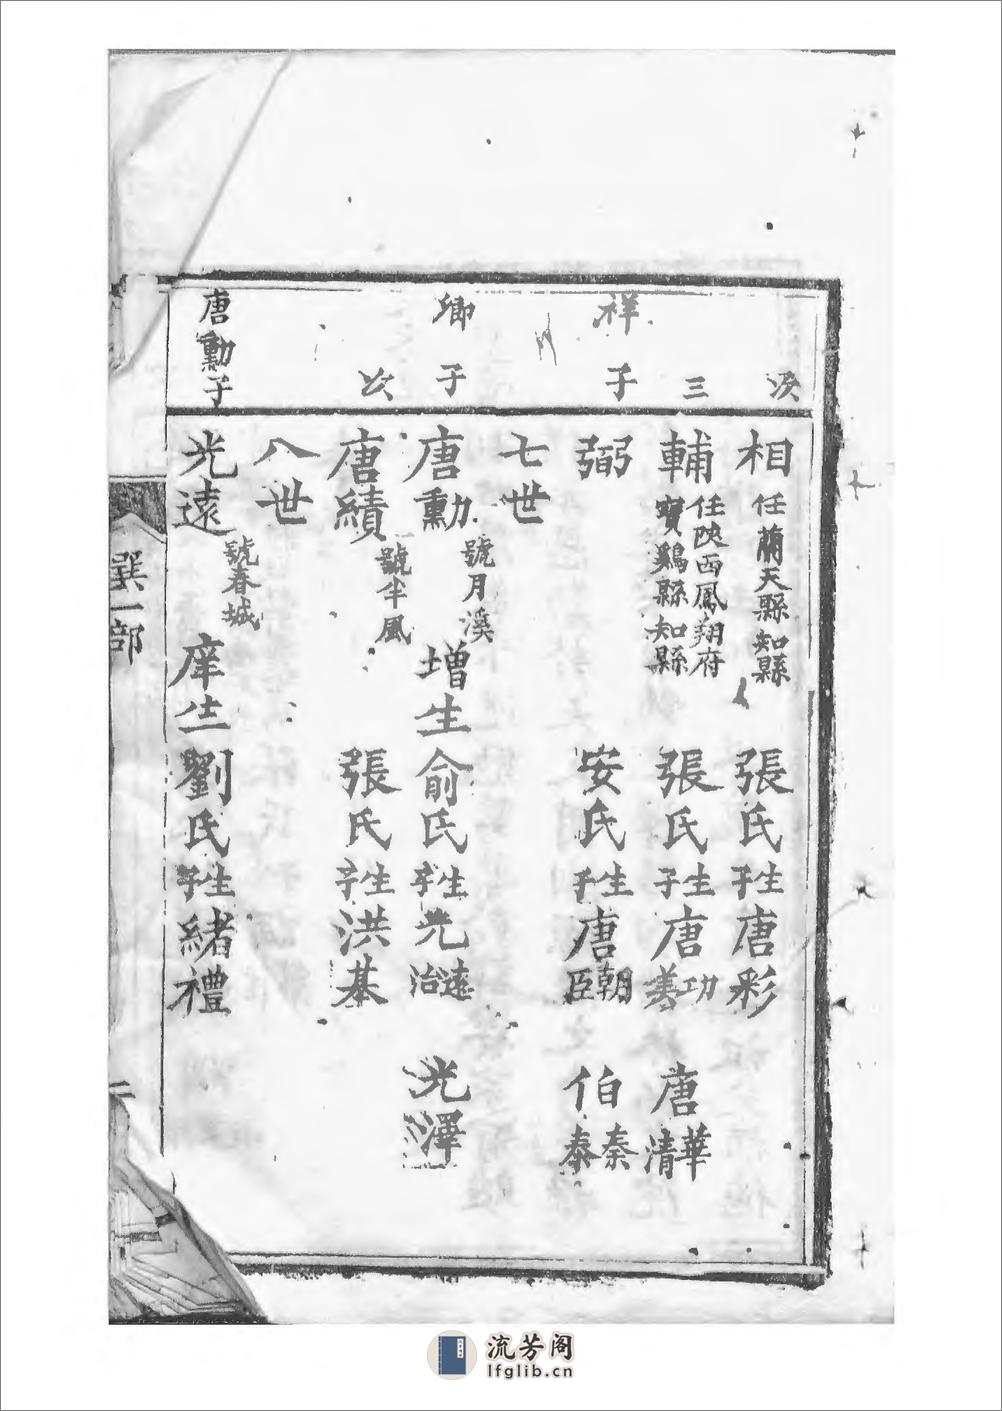 次 相 任蘭天縣知縣 張氏 生子 唐彩
三 輔 任陝西鳳翔府寶鷄縣知縣 張氏 生子 唐功 善 唐華 清
祥子 弼 安氏 生子 唐朝 臣 伯秦 泰
七世
卿子 唐勳 號月溪 增生 俞氏 生子 光遠 治 光澤
次 唐績 號半風 張氏 生子 洪基
八世
唐勳子 光遠 號春城 庠生 劉氏 生子 緒禮
譔一部
流芳阁
lfglib.cn